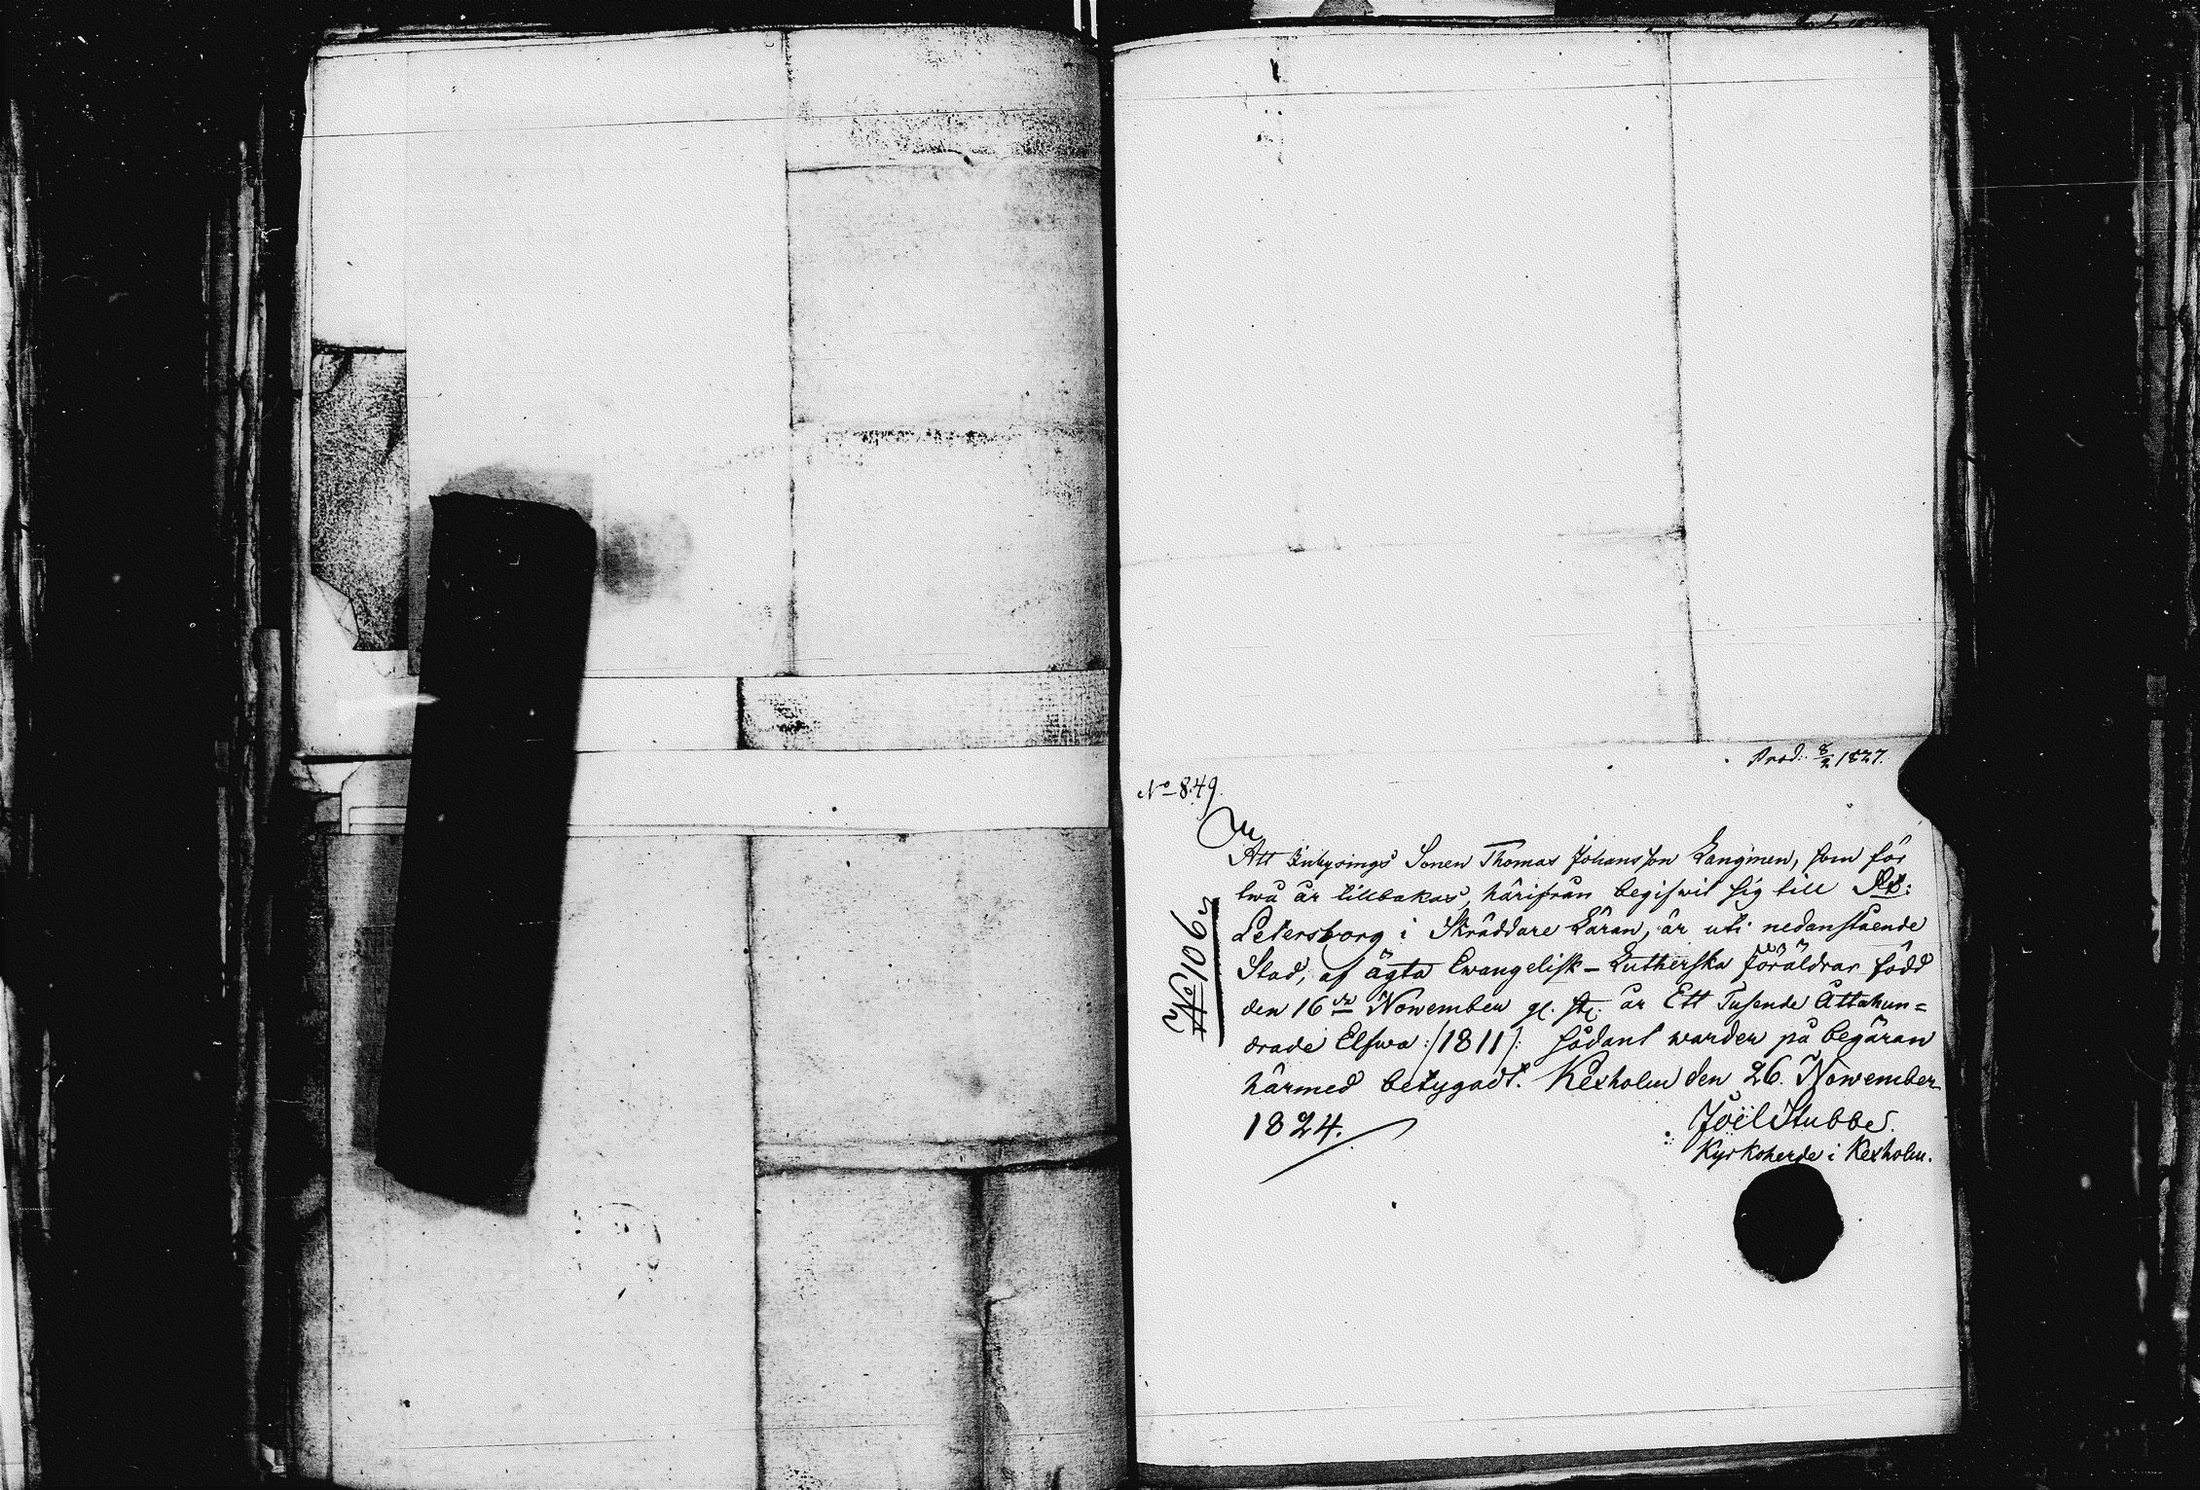 Prod: 8/2 1827.
No 849.
Att Inhysings Sonen Thomas Johansson Langinen, som för
twå år tillbakas, härifrån begifwit sig till St:
Petersborg i Skräddare Läran, är uti nedanstående
Stad, af ägta Ewangelisk-Lutherska föräldrar född
den 16de November gl. st. år Ett Tusende Åttahun=
drade Elfwa :/1811/: sådant warder på begäran
härmed betygadt. Kexholm den 26. November
1824.
Joël Stubbe.
Kyrkoherde i Kexholm.
No 106